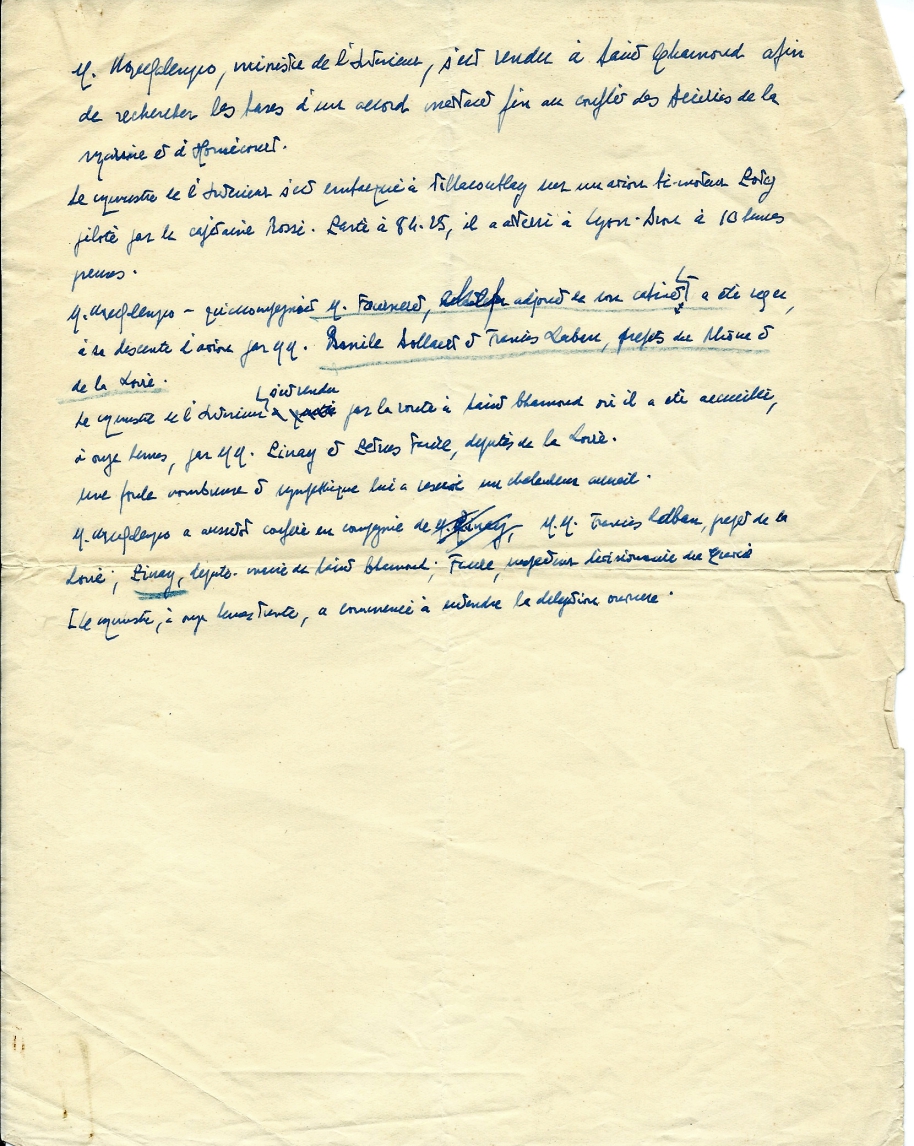 M. , ministre de l'Intérieur, s'est rendu à Saint Chamond afin
de rechercher les bases d'un accord mettant fin au conflit des Aciéries de la
Marine et d'Homécourt.
Le ministre de l'Intérieur s'est embarqué à Villacoublay sur un avion bi-moteur
piloté par le capitaine Rossi. Parti à 8h.25, il a atterri à Lyon-Bron à 10 heures
M. – qu'accompagnait M. , adjoint de son cabinet a été reçu,
à sa descente d'avion par MM. Bollaert et Francis , préfets du Rhône et
de la Loire.
Le ministre de l'Intérieur s'est rendu par la route à Saint Chamond où il a été accueilli,
à onze heures, par MM. Pinay et Faure, députés de la Loire.
Une foule nombreuse et sympathique lui a réservé un chaleureux accueil.
M. a aussitôt conféré en compagnie de M. Pinay, M.M. Francis , préfet de la
Loire; Pinay, député-maire de Saint Chamond; , inspecteur divisionnaire du travail
[Le ministre, à onze heures trente, a commencé à entendre la délégation ouvrière.